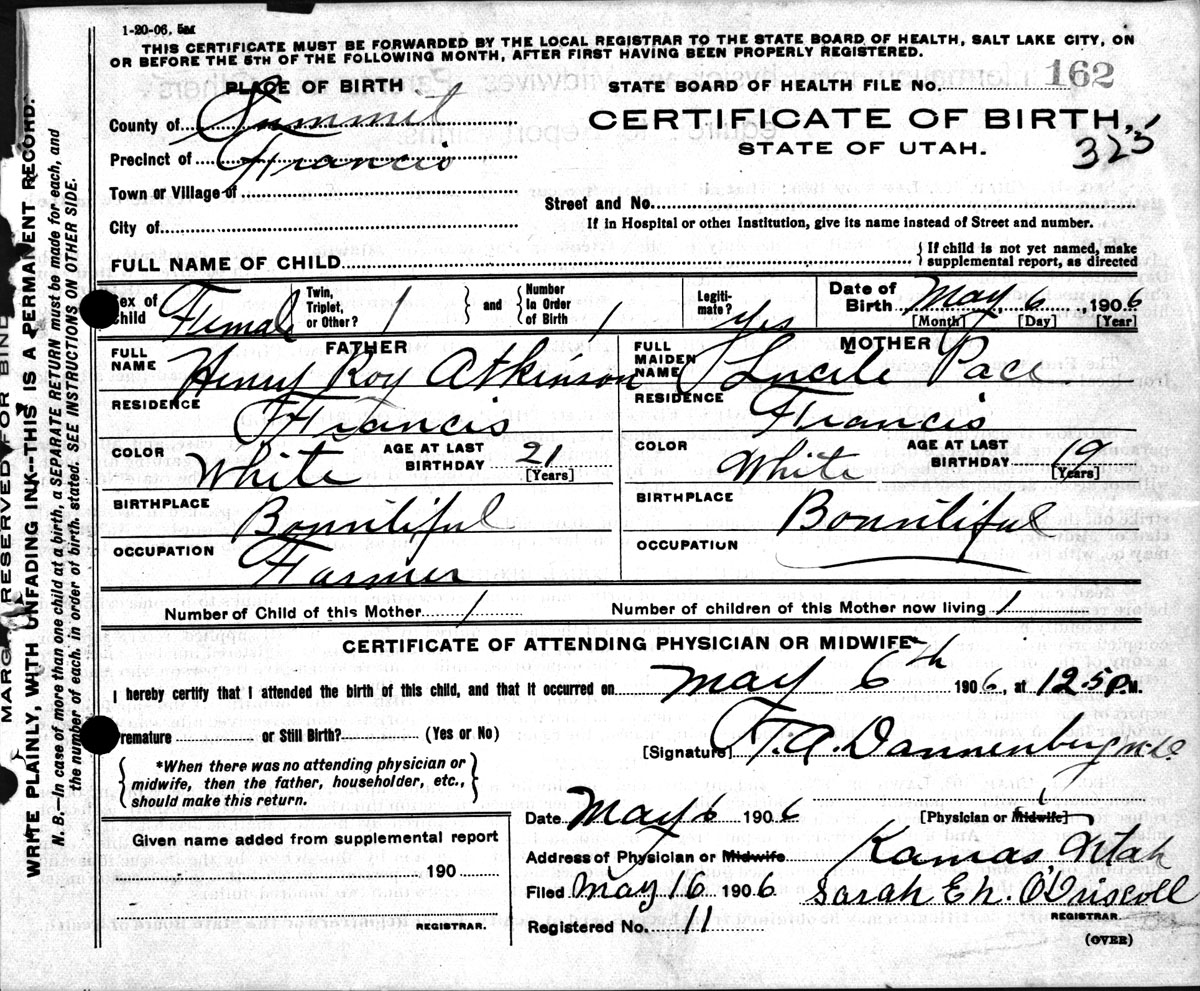 1-20-06, 5M
THIS CERTIFICATE MUST BE FORWARDED BY THE LOCAL REGISTRAR TO THE STATE BOARD OF HEALTH, SALT LAKE CITY, ON
OR BEFORE THE 5TH OF THE FOLLOWING MONTH, AFTER FIRST HAVING BEEN PROPERLY REGISTERED.
PLACE OF BIRTH
STATE BOARD OF HEALTH FILE NO. 162
County of Summit
CERTIFICATE OF BIRTH, 325
Precinct of Francis
STATE OF UTAH.
Town or Village of
Street and No.
City of
If in Hospital or other Institution, give its name instead of Street and number.
FULL NAME OF CHILD { If child is not yet named, make
supplemental report, as directed
Sex of Child Female Twin, Triplet, or Other? 1 } and { Number In Order of Birth 1 Legiti-mate? Yes Date of Birth May, 6, 1906
[Month] [Day] [Year]
FATHER MOTHER
FULL NAME Henry Roy Atkinson FULL MAIDEN NAME Lucile Pace
RESIDENCE Francis RESIDENCE Francis
COLOR White AGE AT LAST BIRTHDAY 21 [Years] COLOR White AGE AT LAST BIRTHDAY 19 [Years]
BIRTHPLACE Bountiful BIRTHPLACE Bountiful
OCCUPATION Farmer OCCUPATION
Number of Child of this Mother 1 Number of children of this Mother now living 1
CERTIFICATE OF ATTENDING PHYSICIAN OR MIDWIFE
I hereby certify that I attended the birth of this child, and that it occurred on May 6th 1906, at 12.5 P.M.
Premature or Still Birth? (Yes or No)
[Signature] F. A. Dannenberg M.D.
{ *When there was no attending physician or
midwife, then the father, householder, etc.,
should make this return. }
Date May 6 1906 [Physician or Midwife]
Given name added from supplemental report
Address of Physician or Midwife Kamas Utah
190
Filed May 16 1906 Sarah E. h. O'Driscoll
REGISTRAR.
Registered No. 11
REGISTRAR.
(OVER)
MARGIN RESERVED FOR BINDING
WRITE PLAINLY, WITH UNFADING INK--THIS IS A PERMANENT RECORD.
N. B.--In case of more than one child at a birth, a SEPARATE RETURN must be made for each, and
the number of each, in order of birth, stated. SEE INSTRUCTIONS ON OTHER SIDE.